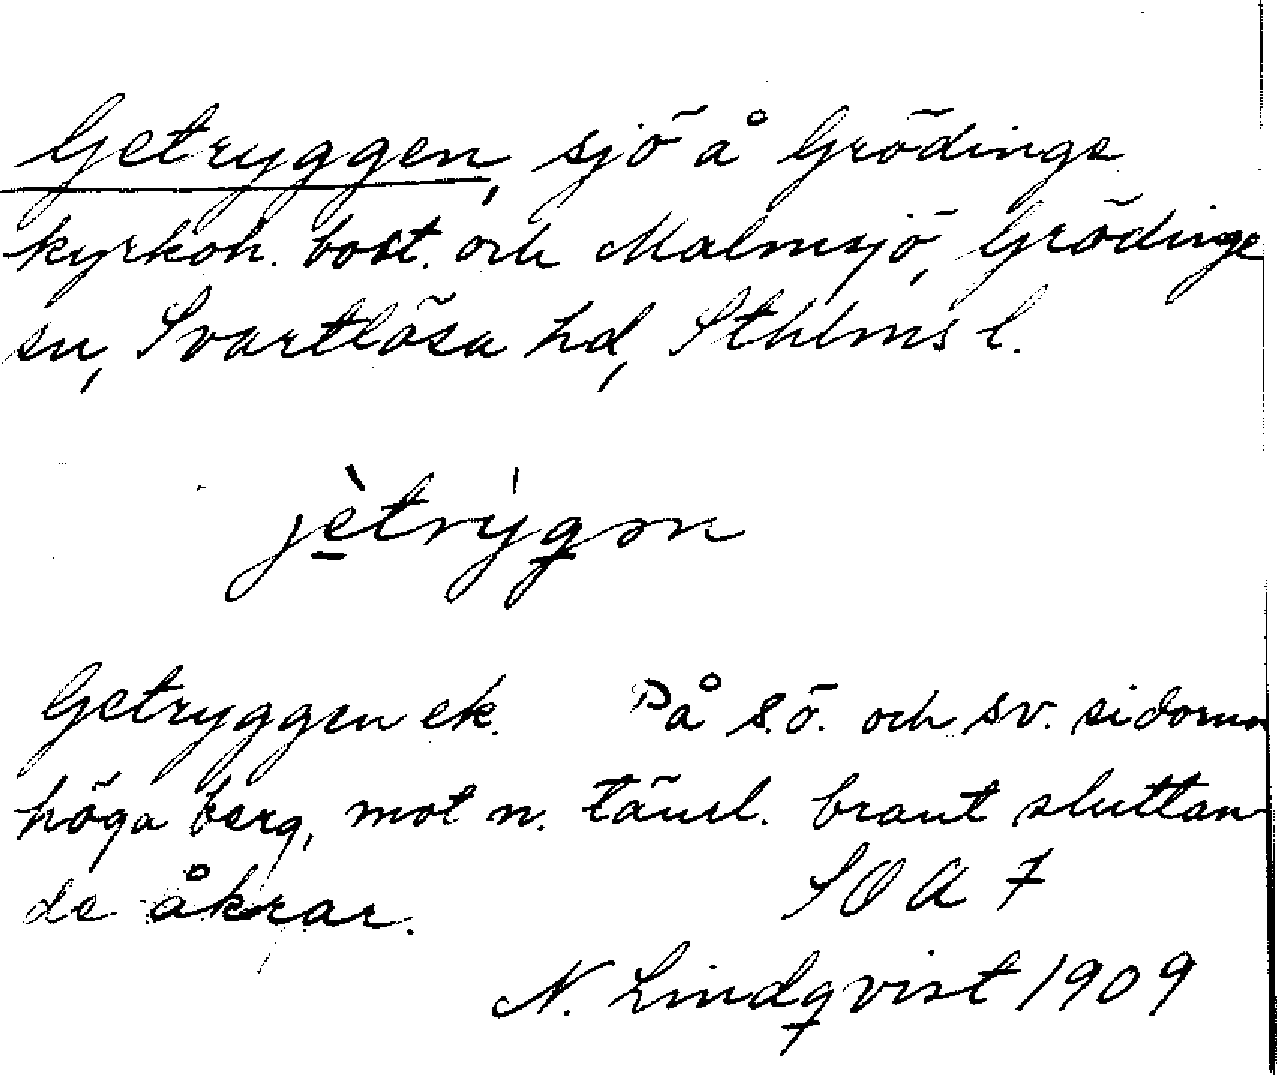 Getryggen, sjö å Grödinge
kyrkoh. bost. och Malmsjö, Grödinge
sn, Svartlösa hd, Sthlms l.
jètrýgən
Getryggen ek. På s.ö. och sv. sidorna
höga berg, mot n. täml. brant sluttan
de åkrar.
SOA 7
N. Lindqvist 1909